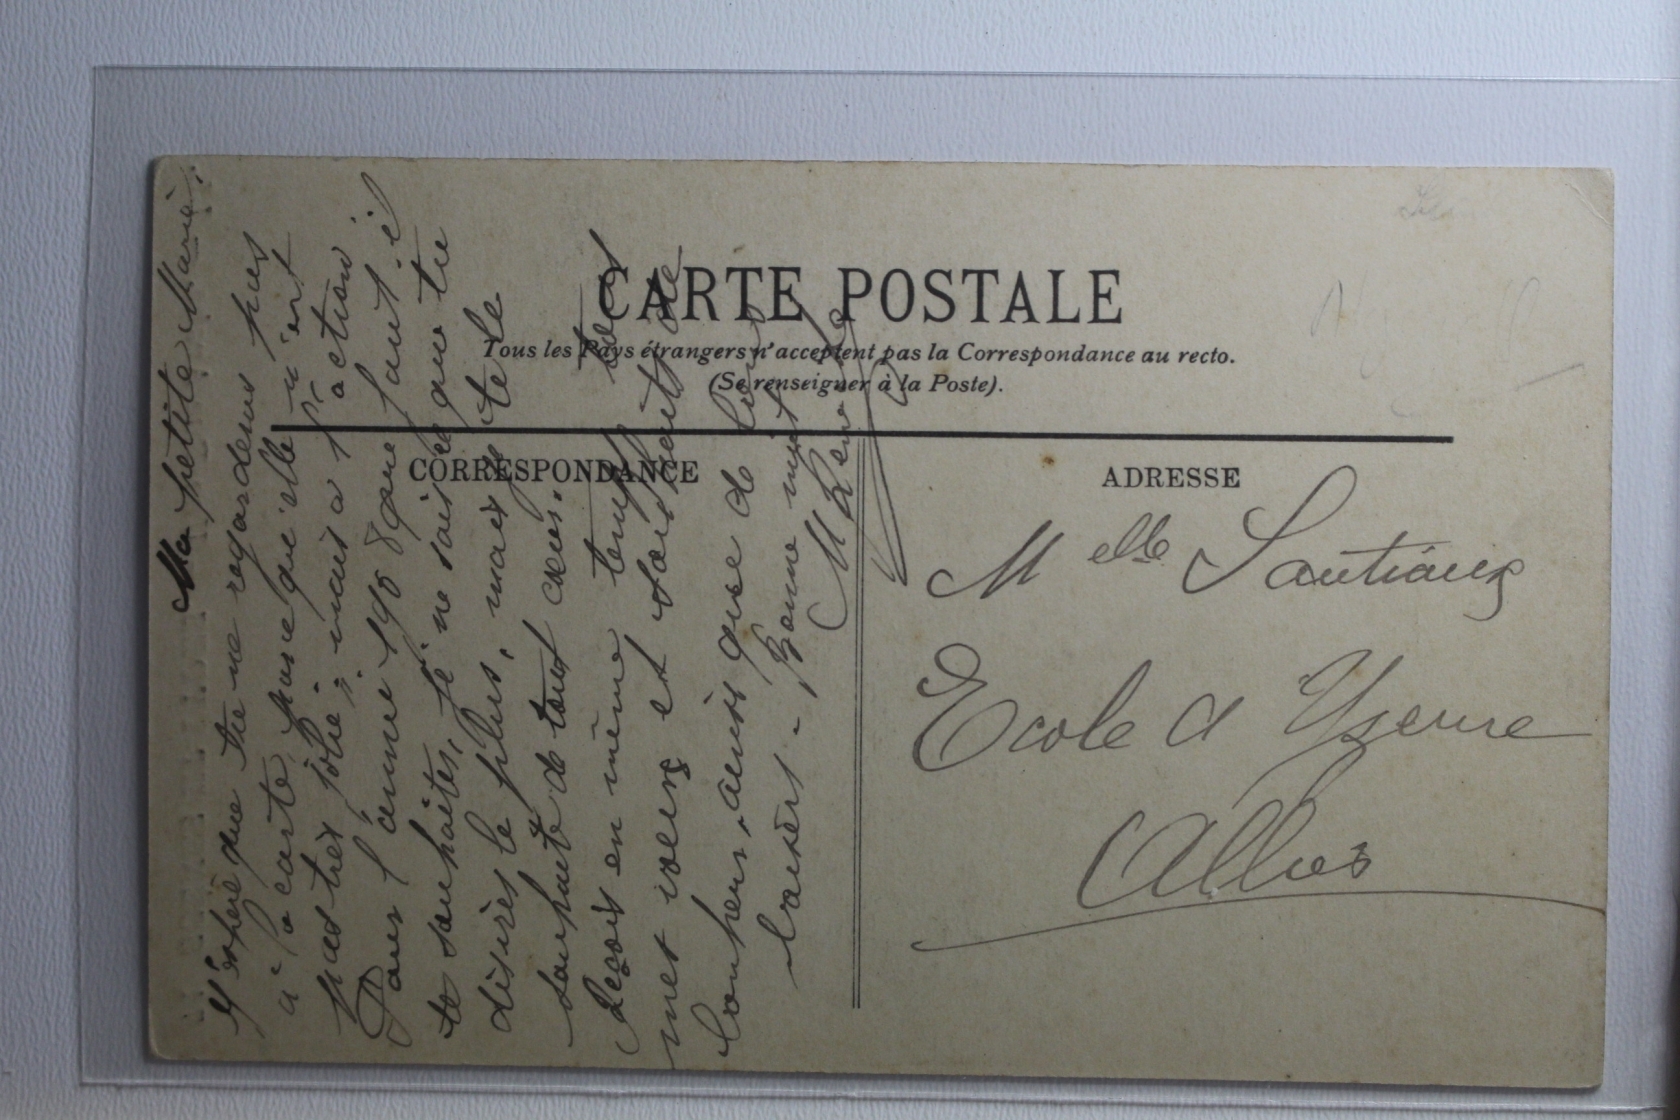 CARTE POSTALE
Tous les Pays étrangers n'acceptent pas la Correspondance au recto.
(Se renseigner à la Poste).
CORRESPONDANCE
ADRESSE
Ma petite Marie.
J'espère que tu ne regarderas pas
à la carte parce qu'elle n'est
pas très jolie; mais a l'action
Pour l'année 1908 que faut il
te souhaiter, je ne sais ce que tu
désires le plus, mais je te le
souhaite de tout cœur.
Reçois en même temps tous
mes vœux et souhaits de
bonheur, ainsi que de bons
baisers - Bonne nuit
M Renée
Melle Sautiaux
Ecole d Yzeure
Allier